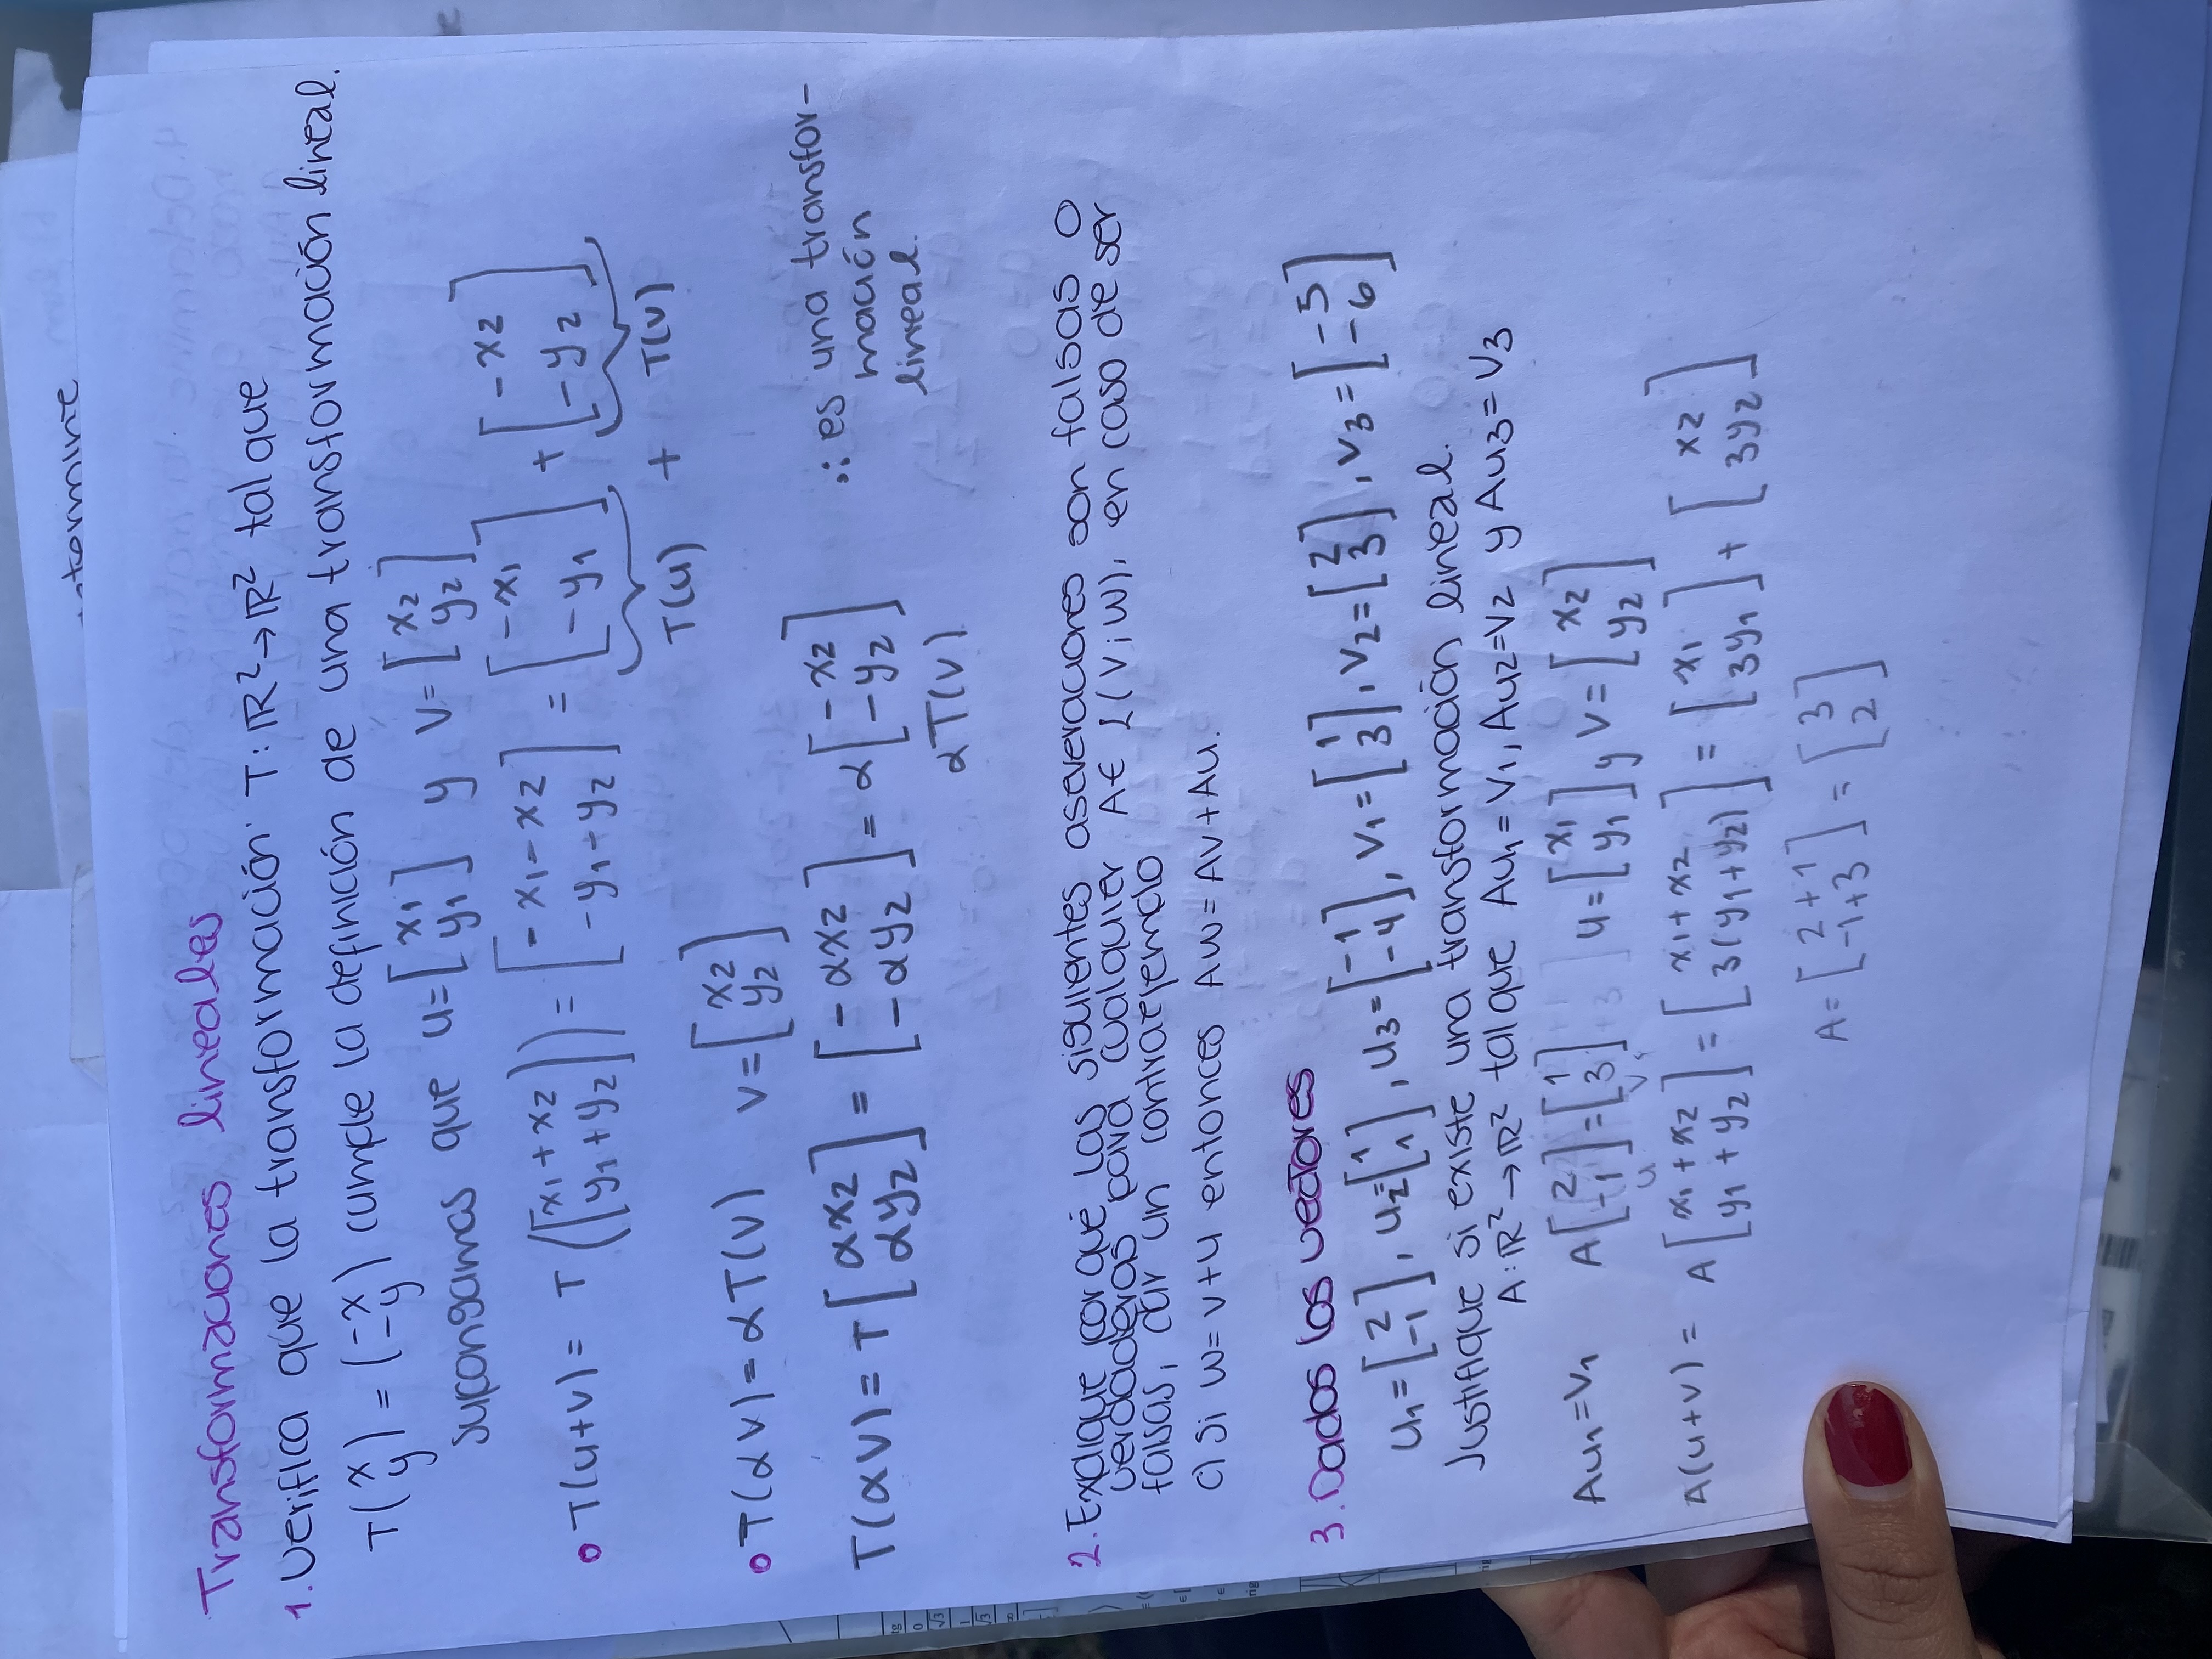 termine
Transformaciones lineales
1. Verifica que la transformación T: ℝ² → ℝ² tal que
T(x y) = (-x -y) cumple la definición de una transformación lineal.
supongamos que u = [x₁ y₁] y v = [x₂ y₂]
• T(u+v) = T([x₁+x₂ y₁+y₂]) = [-x₁-x₂ -y₁-y₂] = [-x₁ -y₁] + [-x₂ -y₂]
T(u) + T(v)
• T(αv) = αT(v) v = [x₂ y₂]
T(αv) = T[αx₂ αy₂] = [-αx₂ -αy₂] = α[-x₂ -y₂]
αT(v)
∴ es una transfor-
mación
lineal.
2. Explique por qué las siguientes aseveraciones son falsas o
verdaderas para cualquier A∈ L(V;W), en caso de ser
falsas, dar un contraejemplo
c) Si w = v+u entonces Aw = Av+Au.
3. Dados los vectores
u₁ = [2 -1], u₂ = [1 1], u₃ = [-1 -4], v₁ = [1 3], v₂ = [2 3], v₃ = [-5 -6]
Justifique si existe una transformación lineal.
A: ℝ² → ℝ² tal que Au₁ = v₁, Au₂ = v₂ y Au₃ = v₃
Au₁ = v₁ A[2 -1] = [1 3] u = [x₁ y₁] y v = [x₂ y₂]
u v
A(u+v) = A[x₁+x₂ y₁+y₂] = [x₁+x₂ 3(y₁+y₂)] = [x₁ 3y₁] + [x₂ 3y₂]
A = [2+1 -1+3] = [3 2]